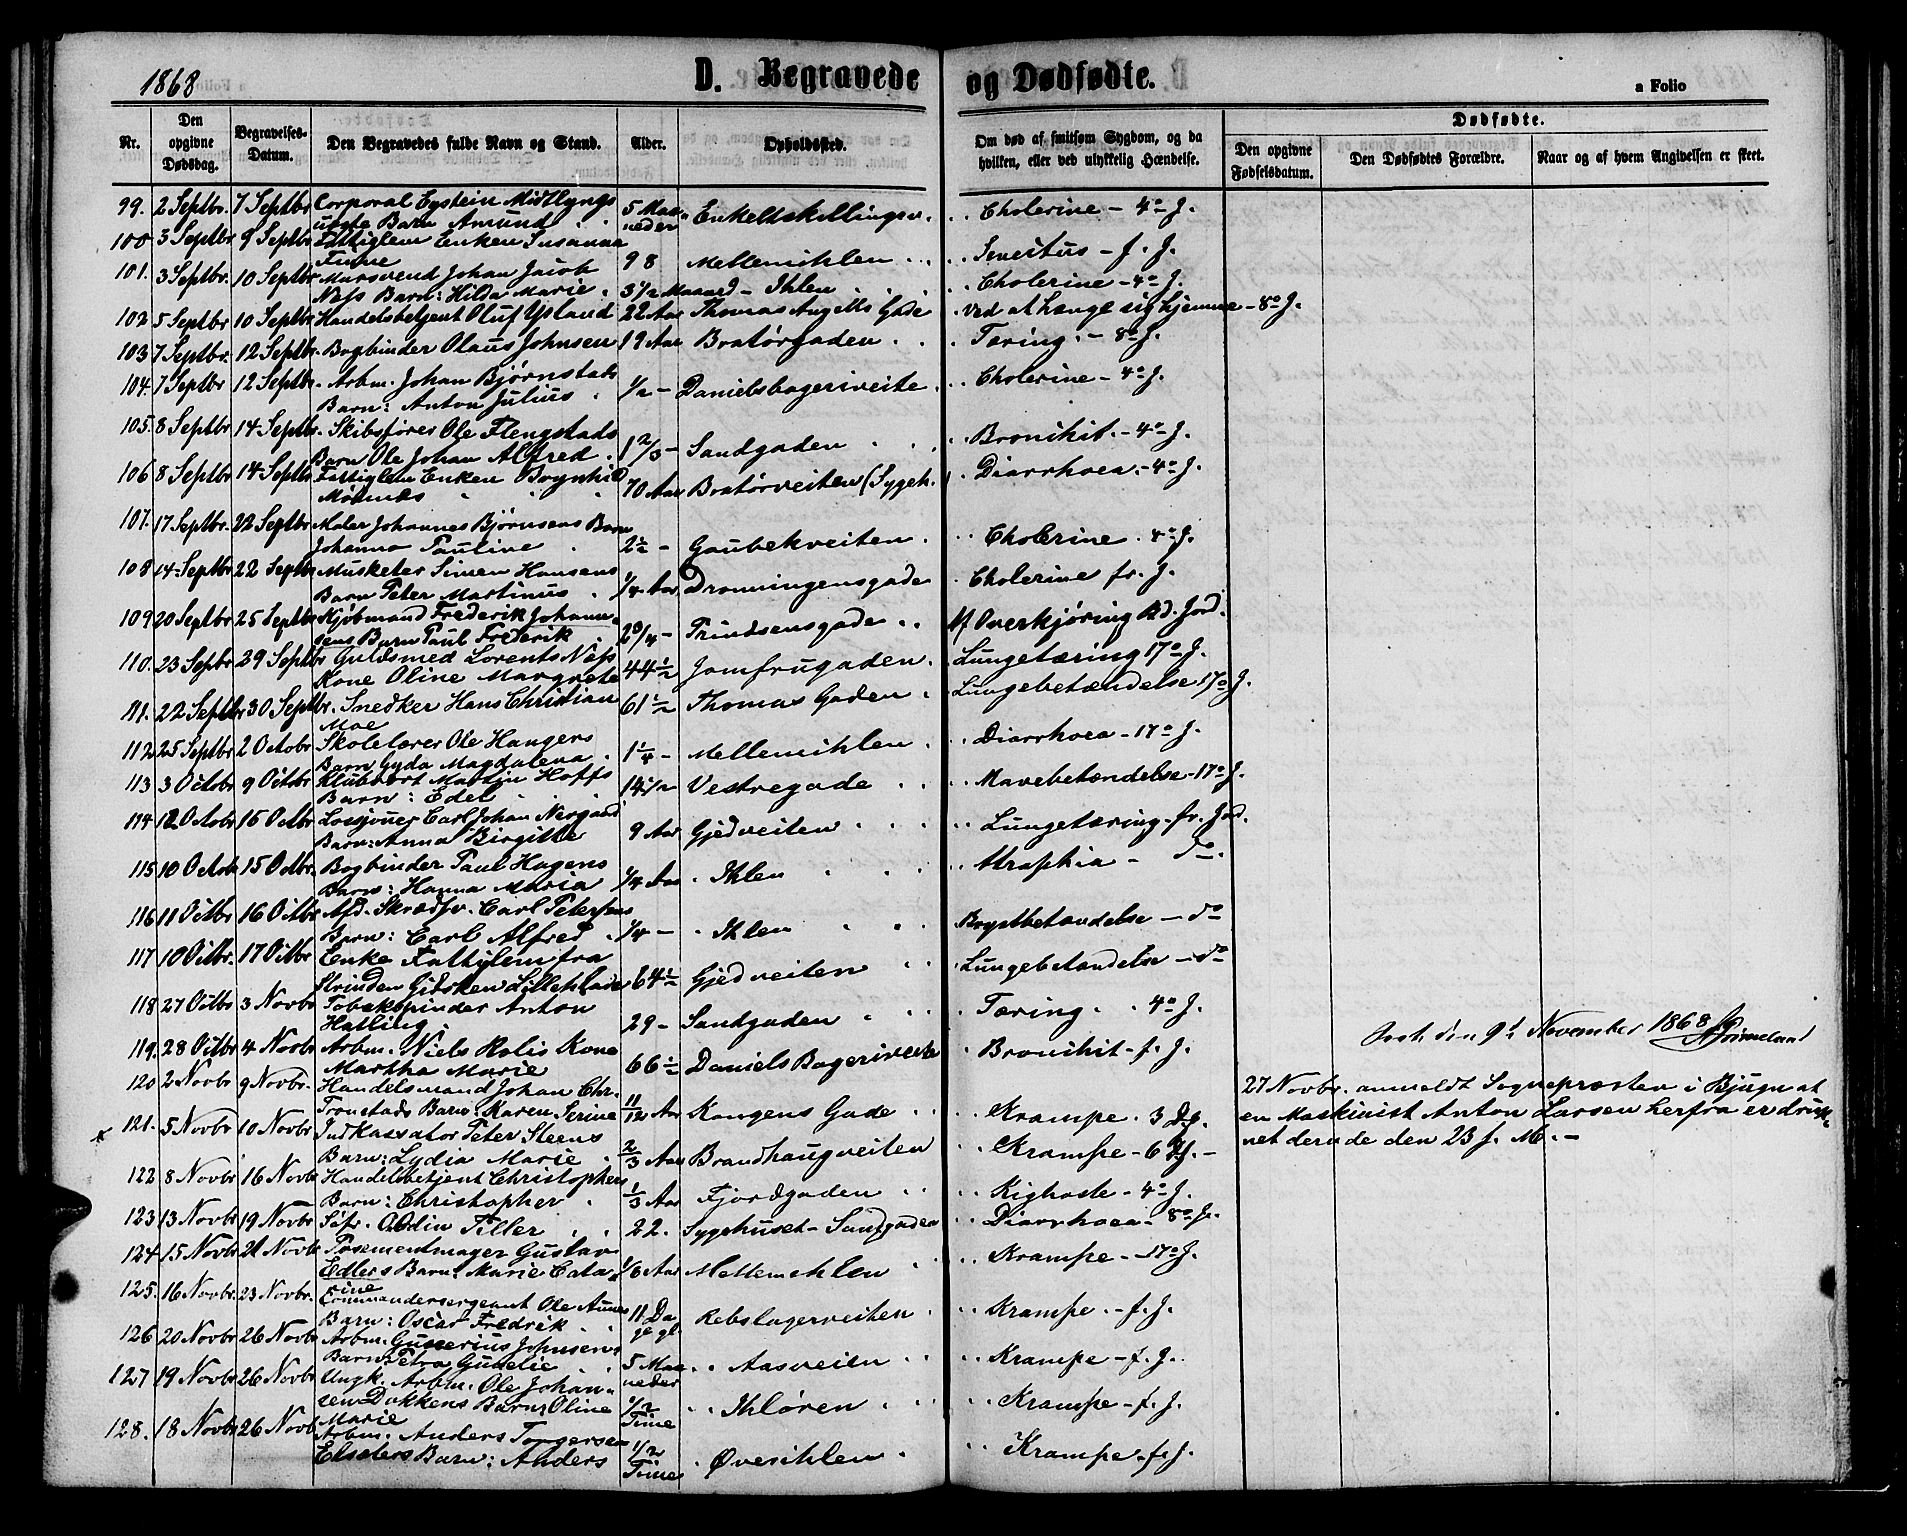 1868
D. Begravede og Dødfødte.
a Folio
Nr.
Den opgivne Dødsdag.
Begravelses-Datum.
Den Begravedes fulde Navn og Stand.
Alder.
Opholdssted.
Om død af smitsom Sygdom, og da hvilken, eller ved ulykkelig Hændelse.
Dødfødte.
Den opgivne Fødselsdatum.
Den Dødfødtes Forældre.
Naar og af hvem Angivelsen er skeet.
99. 2 Septbr. 7 Septbr Corporal Eystein Midtlyngs
Barn Amund 5 Maaneder Enkeltskillingsv. Cholerine - 4º J.
100 3 Septbr 9 Septbr Fattiglem Enken Susanna
98 Mellemihlen - f. J.
101. 3 Septbr. 10 Septbr Johan Jacob
Næss Barn: Hilda Marie 3 1/2 Maaned - Ihlen Cholerine - 4º J.
102 5 Septbr 10 Septbr Handelsbetjent Oluf Ysland 22 Aar Thomas Angells Gade Ved at hænge sig hjemme - 8º J.
103 7 Septbr. 12 Septbr. Bogbinder Olaus Johnsen 19 Aar Bratørgaden Tæring. - 8º J.
104. 7 Septbr 12 Septbr. Arbm. Johan Bjørnstads
Barn: Anton Julius 1/2 - Danielsbageriveite Cholerine - 4º J.
105. 8 Septbr 14 Septbr. Skibsfører Ole Flengstads
Barn Ole Johan Alfred 1 2/3 - Sandgaden Bronikit. - 4º J.
106 8 Septbr 14 Septbr Fattiglem Enken Brynhild
70 Aar Bratørveiten (Sygeh.) Diarrhoea. - 4º J.
107. 17 Septbr. 22 Septbr Maler Johannes Bjørnsens Barn
Johanna Pauline 2 1/2 - Gaubekveiten Cholerine. 4º J.
108 14 Septbr 22 Septbr Musketer Simen Hansens
Barn Peter Martinus 1/4 Aar Dronningensgade Cholerine fr. J.
109 20 Septbr 25 Septbr Kjøbmand Frederik Johann-
sens Barn Paul Frederik 2 3/4 - Prindsensgade Af Overkjøring Jord.
110. 23 Septbr 29 Septbr Guldsmed Lorents Næss
Kone Oline Margrete 44 1/2 Jomfrugaden Lungetæring 17º J.
111. 22 Septbr 30 Septbr. Snedker Hans Christian
Moe 61 1/2 Thomas Gaden Lungebetændelse 17º J.
112 25 Septbr 2 Octobr Skolelærer Ole Haugens
Barn Gyda Magdalena 1 1/4 - Mellemihlen Diarrhoea - 17º J.
113 3 Octobr 9 Octobr Klubvært Martin Hoffs
Barn: Edel 14 1/2 Vestregade Mavebetændelse - 17º J.
114 12 Octobr 15 Octbr Carl Johan Nergaard
Barn: Anna Birgitte 9 Aar Gjedveiten Lungetæring. fr. Jord.
115 10 Octobr 15 Octbr. Bogbinder Paul Hagens
Barn: Hanna Maria 1/4 Aar Ihlen Atrophia - do.
116 11 Octbr 16 Octbr Afd. Skrædsv. Carl Petersens
Barn: Carl Alfred 1/4 - Ihlen Brystbetændelse - do
117 10 Octbr. 17 Octbr Enke Fattiglem fra
Strinden Gidsken Lillehlade 64 1/2 Gjedveiten Lungebetændelse - do
118 27 Octbr 3 Novbr Tobakspinder Anton
Halling. 29 - Sandgaden Tæring. 4º J.
119. 28 Octbr 4 Novbr Arbm. Niels Kolis Kone
Martha Marie 66 1/2 Daniels Bageriveite Bronikit - f. J.
den 9d November 1868
120 2 Novbr 9 Novbr. Handelsmand Johan Chr.
Tronstads Barn: Karen Serine 11/12 Aar Kongens Gade Krampe. 3
27 Novbr. anmeldt Sognepræsten i Bjugn at
en Maskinist Anton Larsen herfra er druk-
net derude den 23 f. M. -
121. 5 Novbr 10 Novbr Indkassator Peter Steens
Barn: Lydia Marie 2/3 Aar Brandhaugveiten Krampe - 6
122 8 Novbr 16 Novbr Handelsbetjent Christophers
Barn: Christopher 1/3 Aar Fjordgaden Kighoste - 4º J.
123 13 Novbr 19 Novbr Odin Tiller 22. Sygehuset - Sandgaden Diarrhoea - 8º J.
124 15 Novbr 21 Novbr Posementmager Gustav
Edlers Barn: Marie Cata-
rine 1/6 Aar Mellemihlen Krampe - 17º J.
125. 16 Novbr. 23 Novbr. Commandersergeant Ole Aunes
Barn: Oscar Fredrik 11 Dage gl. Rebslagerveiten Krampe. - f. J.
126 20 Novbr 26 Novbr Arbm. Gunerius Johnsens
Barn: Petra Gunelie 5 Maaneder Aasveien Krampe - f. J.
127 19 Novbr 26 Novbr Ungk. Arbm. Ole Johan-
sen Dokkens Barn: Oline
Marie 1/2 Time Ihløren Krampe - f. J.
128. 18 Novbr 26 Novb. Arbm. Anders Torgersen
Elsæters Barn: Anders 1/2 Time Øvreihlen Krampe - f. J.